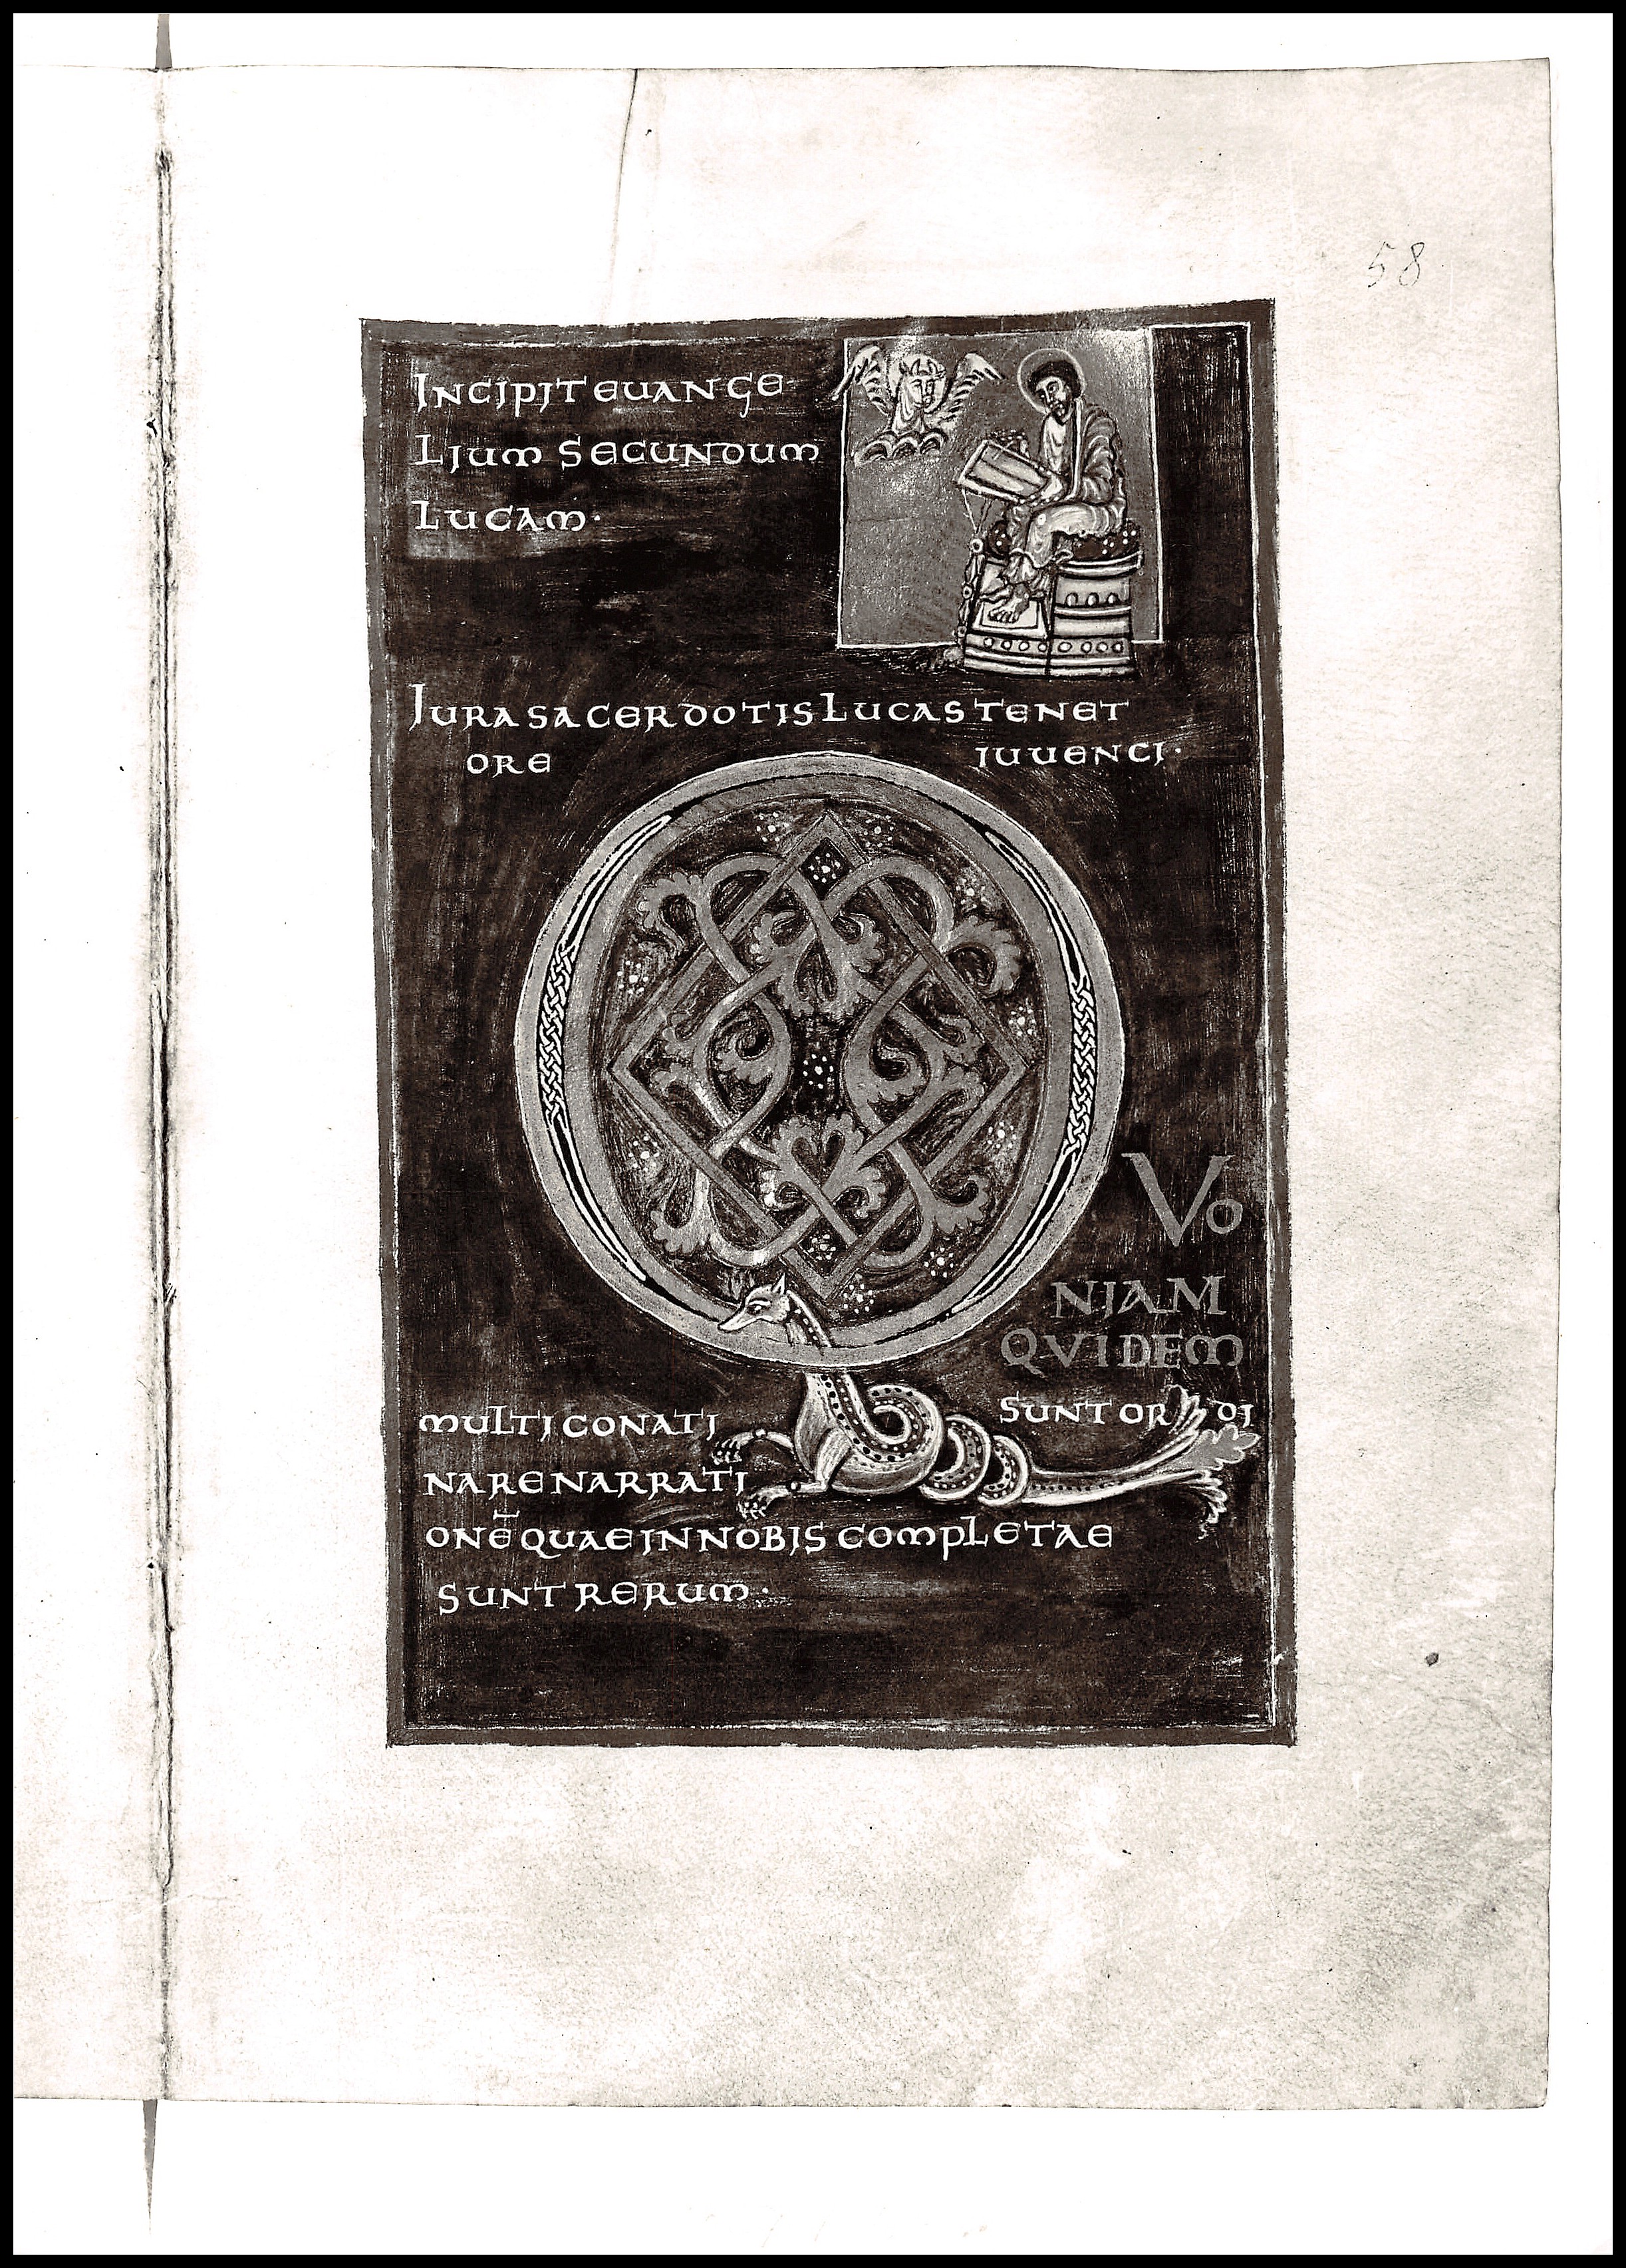 58
INCIPIT EUANGE
LIUM SECUNDUM
LUCAM·
IURA SACERDOTIS LUCAS TENET
ORE IUUENCI·
Q
VO
NIAM
QVIDEM
MULTI CONATI SUNT ORDI
NARE NARRATI
ONĒ QUAE IN NOBIS COMPLETAE
SUNT RERUM·